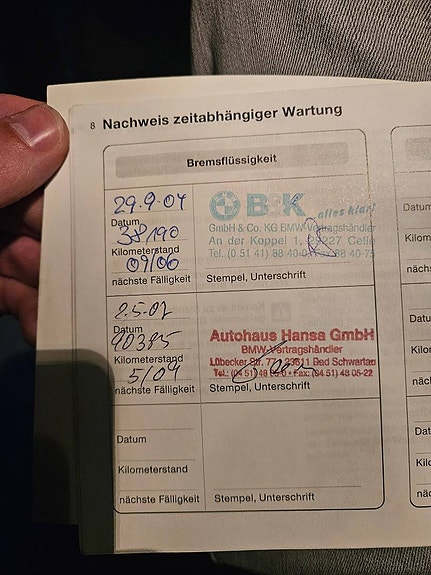 8 Nachweis zeitabhängiger Wartung
Bremsflüssigkeit
29.9.04
Datum
38190
Kilometerstand
09/06
nächste Fälligkeit
B&K alles klar!
GmbH & Co. KG BMW-Vertragshändler
An der Koppel 1, 29227 Celle
Tel. (0 51 41) 88 40-0 88 40-75
Stempel, Unterschrift
2.5.07
Datum
90385
Kilometerstand
5/09
nächste Fälligkeit
Autohaus Hansa GmbH
BMW-Vertragshändler
Lübecker Str. 77 23611 Bad Schwartau
Tel.: (04 51) 48 05-0 • Fax: (04 51) 48 05-22
Stempel, Unterschrift
Datum
Kilometerstand
nächste Fälligkeit
Stempel, Unterschrift